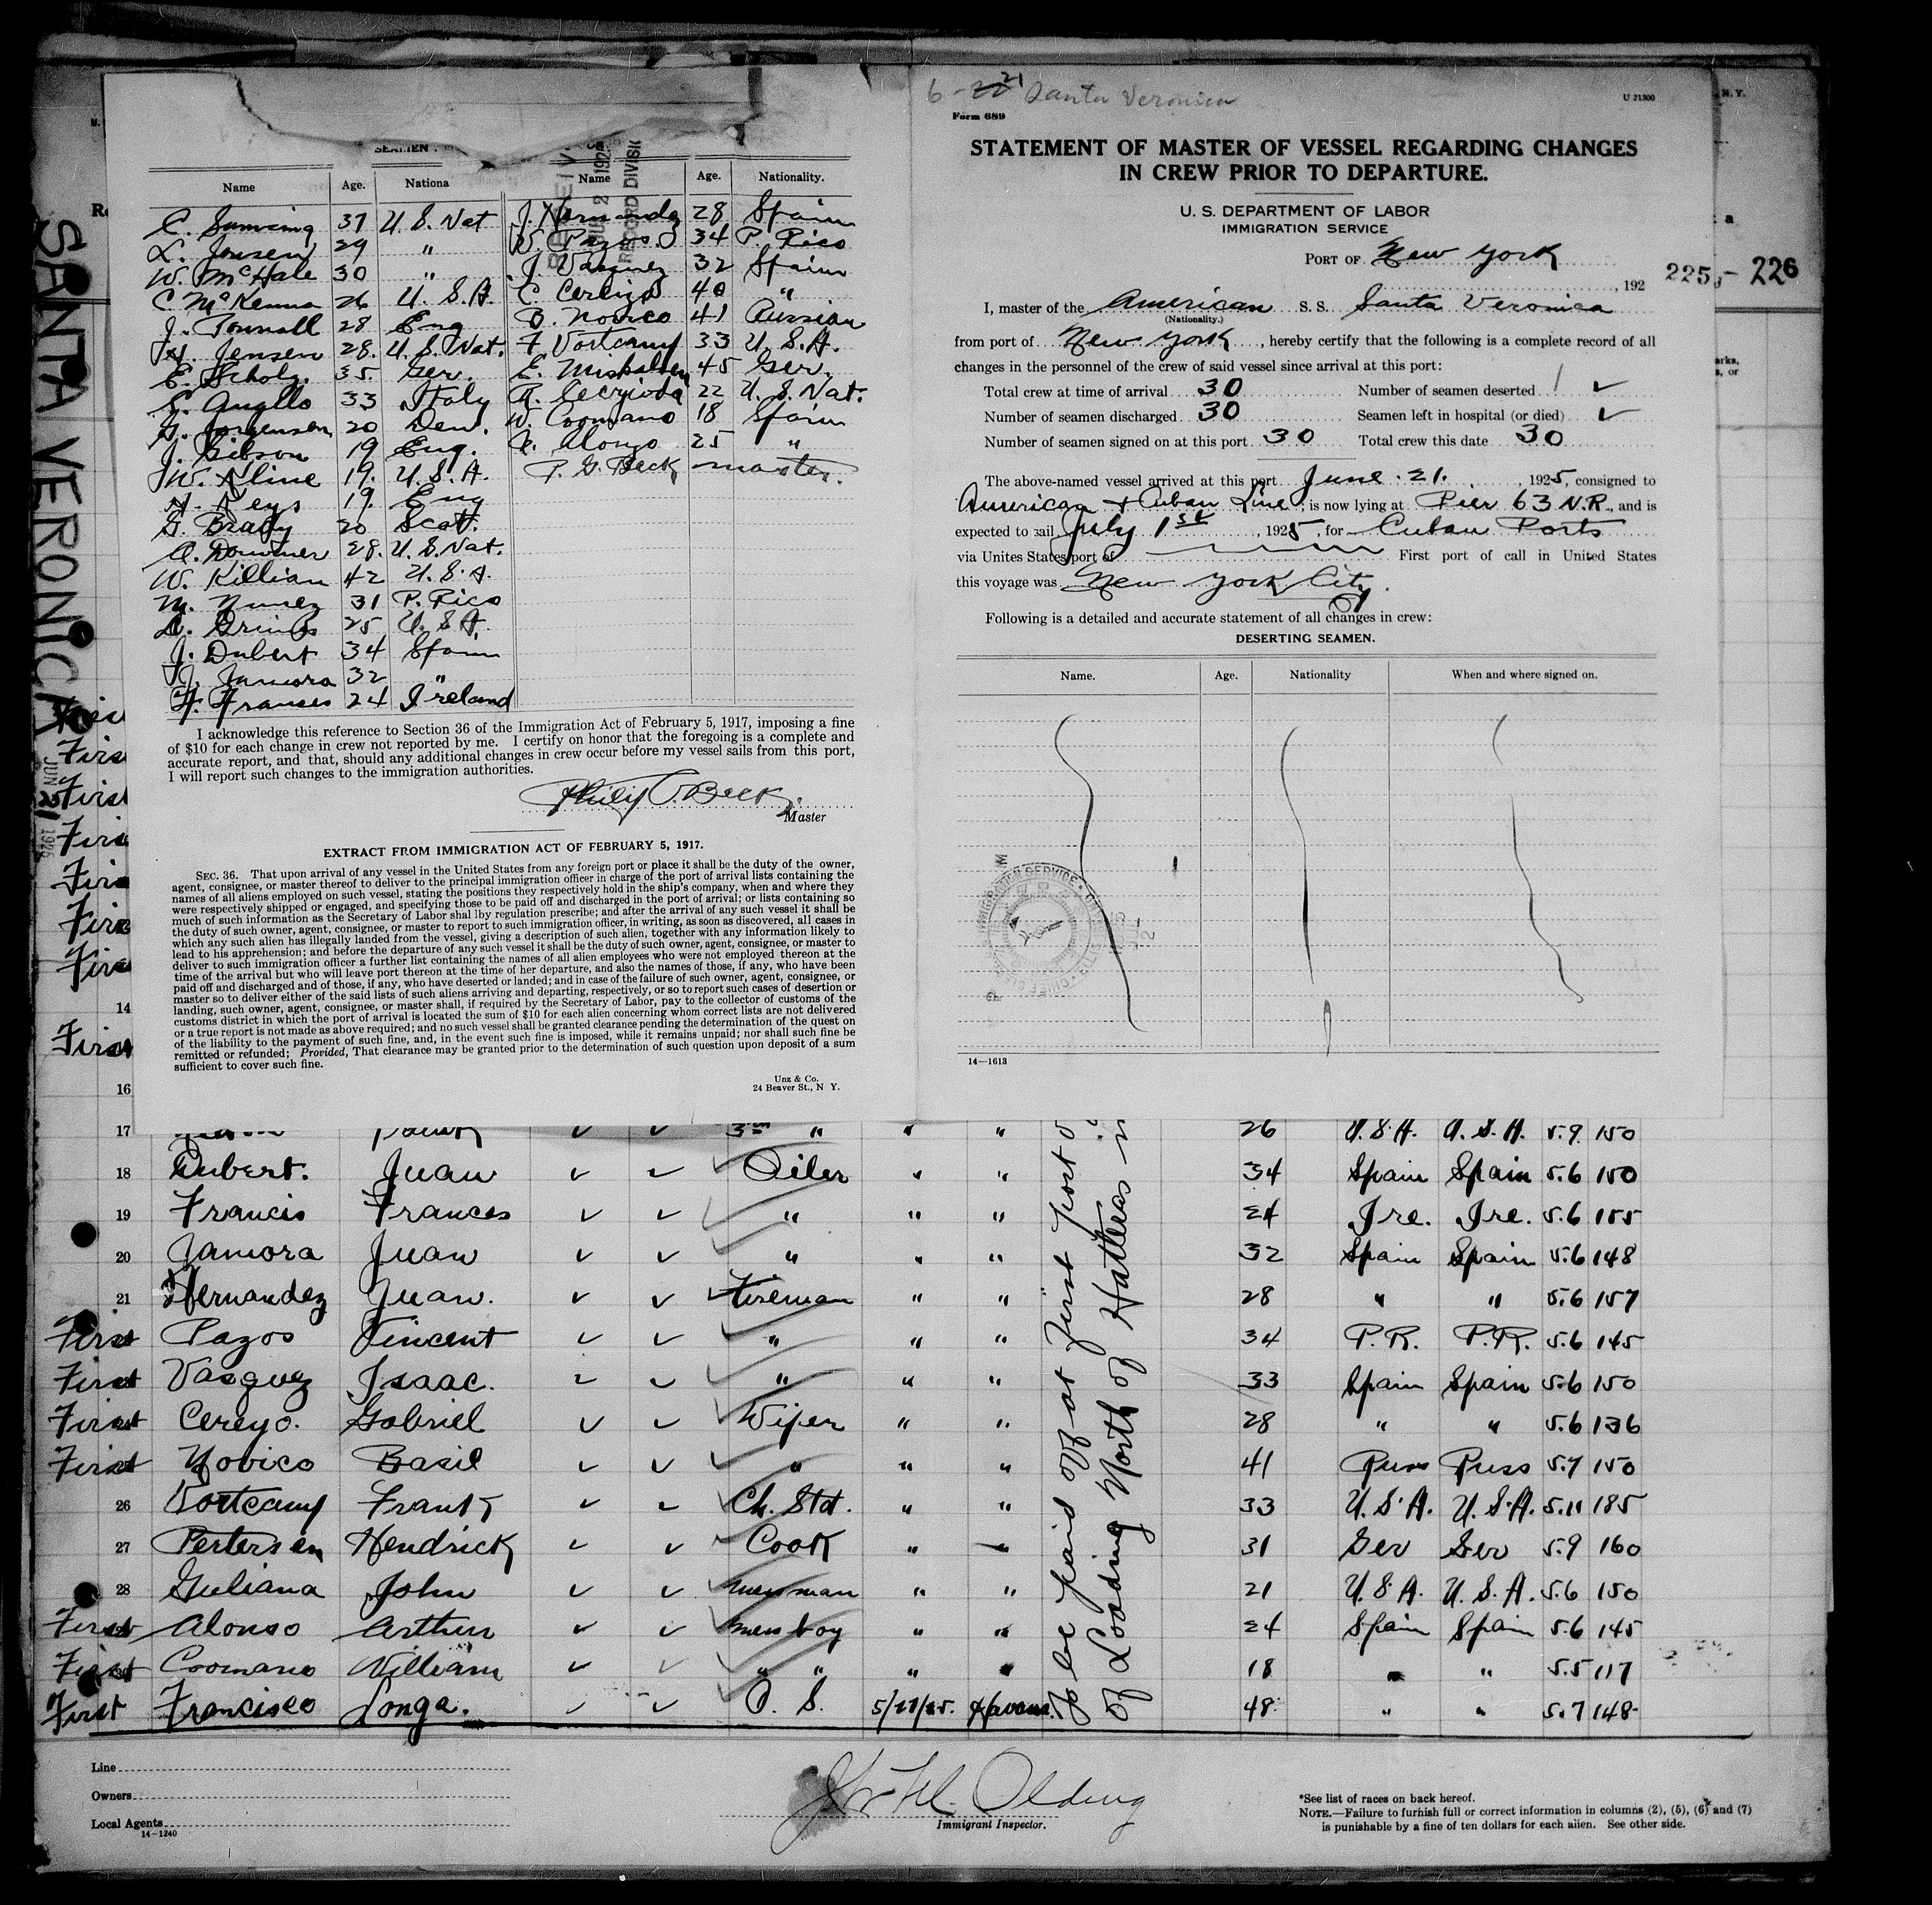 6-21 Santa Veronica
U 21300
N.Y.
Form 689
STATEMENT OF MASTER OF VESSEL REGARDING CHANGES
IN CREW PRIOR TO DEPARTURE.
U. S. DEPARTMENT OF LABOR
IMMIGRATION SERVICE
PORT OF New York
, 192
225 - 226
I, master of the American S. S. Santa Veronica
(Nationality.)
from port of New York, hereby certify that the following is a complete record of all
changes in the personnel of the crew of said vessel since arrival at this port:
Total crew at time of arrival 30 Number of seamen deserted
Number of seamen discharged 30 Seamen left in hospital (or died)
Number of seamen signed on at this port 30 Total crew this date 30
The above-named vessel arrived at this port June 21. , 1925, consigned to
American & Cuban Line, is now lying at Pier 63 N.R., and is
expected to sail July 1st, 1925, for Cuban Ports
via Unites States port of First port of call in United States
this voyage was New York City.
Following is a detailed and accurate statement of all changes in crew:
DESERTING SEAMEN.
Name. Age. Nationality When and where signed on.
14—1613
SANTA VERONICA
JUN 21 1925
Name Age. Nationa Name Age. Nationality.
37 U. S. Nat J. Hernandez 28 Spain
L. Jensen 29 " W. Pazos 34 P. Rico
W. McHale 30 " J. Vasquez 32 Spain
C McKenna 26 U. S. A. 40 "
J. 28 Eng B. Novico 41 Russian
H. Jensen 28. U. S. Nat. F Vortcamp 33 U. S. A.
E. Scholz. 35. Ger. E. 45 Ger.
33 Italy 22 U. S. Nat.
G. Jorgensen 20 Den. W. Coomano 18 Spain
J. Gibson 19 Eng. A. Alonzo 25 "
W. Kline 19. U. S. A. P. G. Beck master.
H. Keys 19. Eng
G. Brady 20 Scot.
A. Dommer 28. U. S. Nat.
W. Killian 42 U. S. A.
M. Nunez 31 P. Rico
25 U. S. A.
J. Dubert 34 Spain
J. Jamora 32 "
F. Franses 24 Ireland
I acknowledge this reference to Section 36 of the Immigration Act of February 5, 1917, imposing a fine
of $10 for each change in crew not reported by me. I certify on honor that the foregoing is a complete and
accurate report, and that, should any additional changes in crew occur before my vessel sails from this port,
I will report such changes to the immigration authorities.
Philip G. Beck.
Master
EXTRACT FROM IMMIGRATION ACT OF FEBRUARY 5, 1917.
SEC. 36. That upon arrival of any vessel in the United States from any foreign port or place it shall be the duty of the owner,
agent, consignee, or master thereof to deliver to the principal immigration officer in charge of the port of arrival lists containing the
names of all aliens employed on such vessel, stating the positions they respectively hold in the ship's company, when and where they
were respectively shipped or engaged, and specifying those to be paid off and discharged in the port of arrival; or lists containing so
much of such information as the Secretary of Labor shal lby regulation prescribe; and after the arrival of any such vessel it shall be
the duty of such owner, agent, consignee, or master to report to such immigration officer, in writing, as soon as discovered, all cases in
which any such alien has illegally landed from the vessel, giving a description of such alien, together with any information likely to
lead to his apprehension; and before the departure of any such vessel it shall be the duty of such owner, agent, consignee, or master to
deliver to such immigration officer a further list containing the names of all alien employees who were not employed thereon at the
time of the arrival but who will leave port thereon at the time of her departure, and also the names of those, if any, who have been
paid off and discharged and of those, if any, who have deserted or landed; and in case of the failure of such owner, agent, consignee, or
master so to deliver either of the said lists of such aliens arriving and departing, respectively, or so to report such cases of desertion or
landing, such owner, agent, consignee, or master shall, if required by the Secretary of Labor, pay to the collector of customs of the
customs district in which the port of arrival is located the sum of $10 for each alien concerning whom correct lists are not delivered
or a true report is not made as above required; and no such vessel shall be granted clearance pending the determination of the quest on
of the liability to the payment of such fine, and, in the event such fine is imposed, while it remains unpaid; nor shall such fine be
remitted or refunded; Provided, That clearance may be granted prior to the determination of such question upon deposit of a sum
sufficient to cover such fine.
Unz & Co.
24 Beaver St., N Y.
14
16
17 3rd " " " 26 U. S. A. U. S. A. 5.9 150
18 Dubert. Juan Oiler " " 34 Spain Spain 5.6 150
19 Francis Frances " " " 24 Ire. Ire. 5.6 155
20 Jamora Juan " " " 32 Spain Spain 5.6 148
21 Hernandez Juan. Fireman " " 28 " " 5.6 157
First Pazos Vincent " " " 34 P.R. P.R. 5.6 145
First Vasquez Isaac. " " " 33 Spain Spain 5.6 150
First Cereyo. Gabriel Wiper " " 28 " " 5.6 136
First Novico Basil " " " 41 Russ Russ 5.7 150
26 Vortcamp Frank Ch. Std. " " 33 U. S. A. U. S. A. 5.11 185
27 Petersen Hendrick Cook " " 31 Ger Ger 5.9 160
28 Guliana John messman " " 21 U. S. A. U. S. A. 5.6 150
First Alonso Arthur messboy " " 24 Spain Spain 5.6 145
First Coomano William " " " " 18 " " 5.5 117
First Francisco Longa. O. S. 5/27/25. Havana. 48 " " 5.7 148
To be paid off at first port of
of Loading North of Hatteras
Line
Owners
Local Agents
14—1240
Olding
Immigrant Inspector.
*See list of races on back hereof.
NOTE.—Failure to furnish full or correct information in columns (2), (5), (6) and (7)
is punishable by a fine of ten dollars for each alien. See other side.